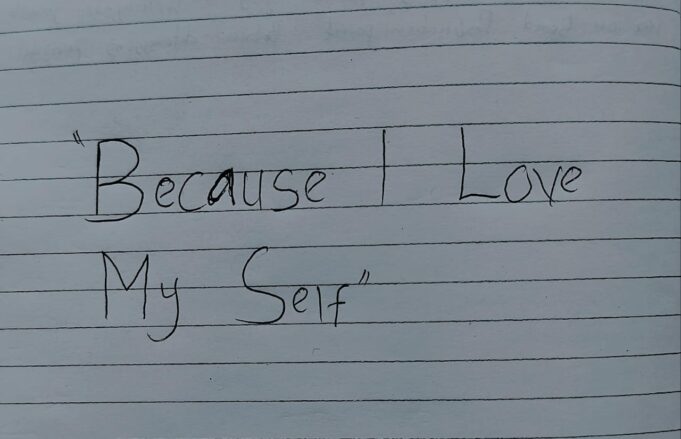 "Because I Love
My Self"